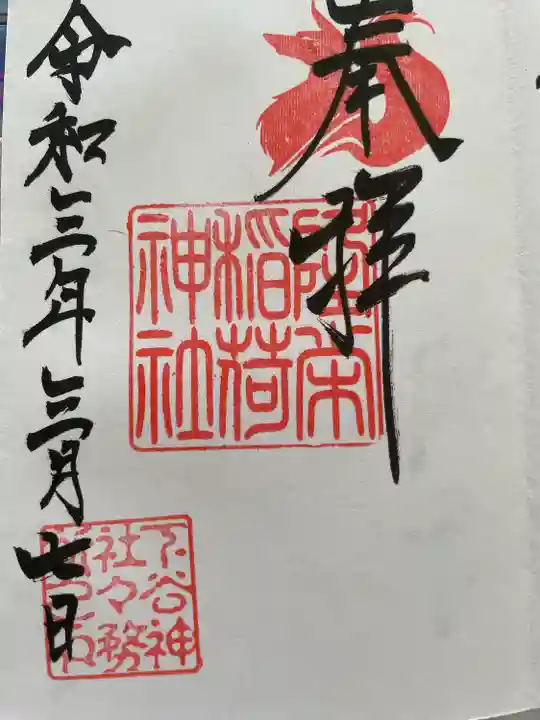 奉拝
稲荷
神社
令和三年三月七日
下谷神
社々務